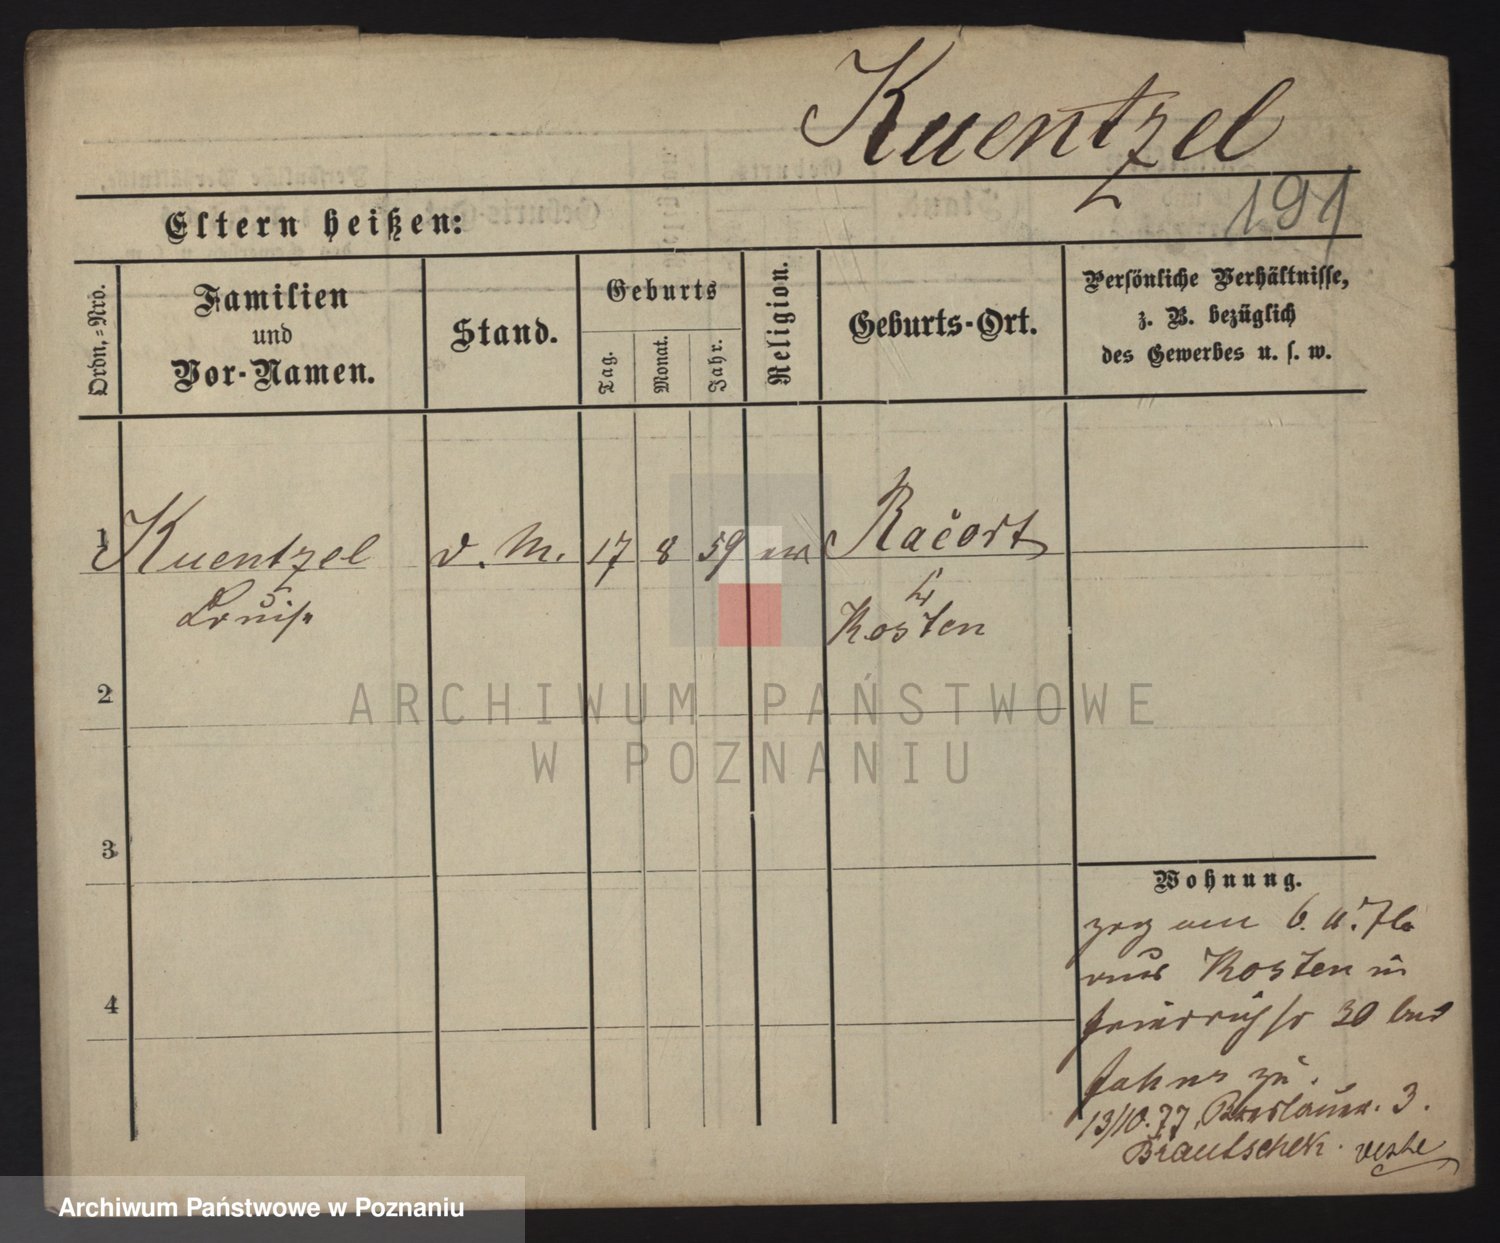 Kuentzel
191
Eltern heißen:
Ordn.-Nro.
Familien
und
Vor-Namen.
Stand.
Geburts
Tag.
Monat.
Jahr.
Religion.
Geburts-Ort.
Persönliche Verhältnisse,
z. B. bezüglich
des Gewerbes u. s. w.
1 Kuentzel d. M. 17 8 59 ew Racort
Louise Kosten
2
3
4
Wohnung.
zog am 6. 11. 76
aus Kosten in
30 bei
zu.
13/10. 77, Breslauer. 3.
Brautschek.
ARCHIWUM PAŃSTWOWE
W POZNANIU
Archiwum Państwowe w Poznaniu